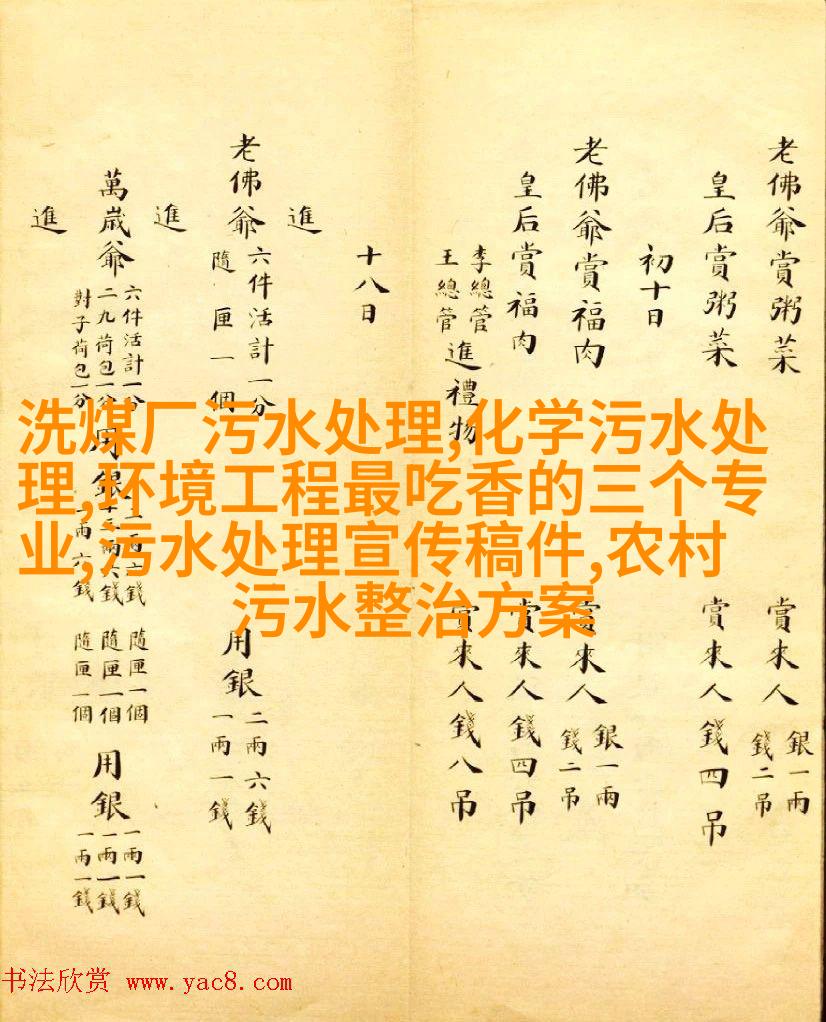 老佛爺賞粥菜 賞來人 銀一兩 錢二吊
皇后賞粥菜 賞來人錢四吊
初十日
老佛爺賞福肉 賞來人 銀一兩 錢二吊
皇后賞福肉 賞來人錢四吊
李總管
王總管
進禮物 賞來人錢八吊
十八日
進
老佛爺 六件活計一分
隨匣一個 用銀 二兩六錢
一兩一錢
進
萬歲爺 六件活計一分
二九荷包一分
對子荷包一分
用銀
隨匣一個
隨匣一個
隨匣一個
用銀 一兩一錢
一兩一錢
一兩一錢
進
洗煤厂污水处理,化学污水处
理,环境工程最吃香的三个专
业,污水处理宣传稿件,农村
污水整治方案
书法欣赏 www.yac8.com